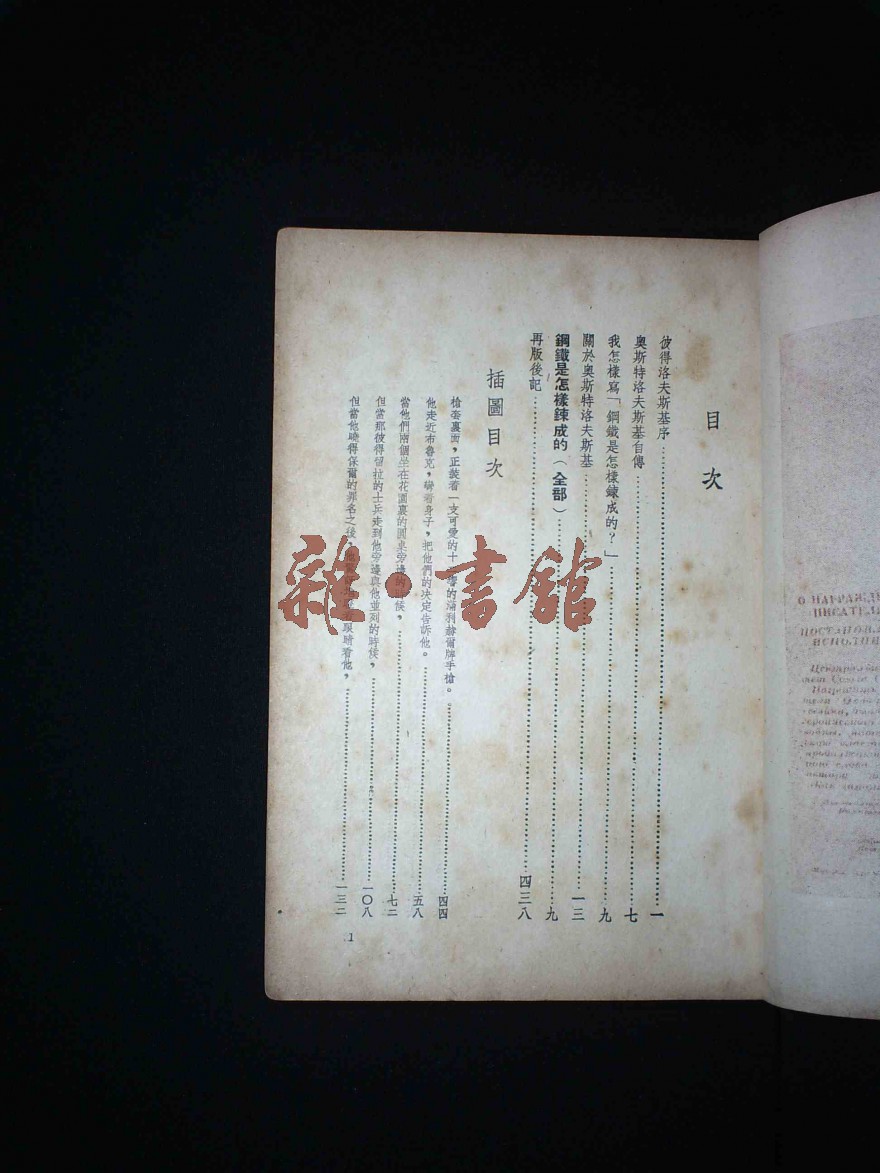 目次
彼得洛夫斯基序……一
奧斯特洛夫斯基自傳……七
我怎樣寫「鋼鐵是怎樣鍊成的?」……九
關於奧斯特洛夫斯基……一三
鋼鐵是怎樣鍊成的(全部)……九
再版後記……四三八
插圖目次
槍套裏面,正裝着一支可愛的十二響的滿利赫爾牌手槍。……四四
他走近布魯克,彎着身子,把他們的決定告訴他。……五八
當他們兩個坐在花園裏的圓桌旁邊的時候,……七二
但當那彼得留拉的士兵走到他旁邊與他並列的時候,……一〇八
但當他曉得保爾的罪名之後,他看他,……一三二
1
雜·書館
О НАГРАЖД
ПИСАТЕЛ
ПОСТАНОВЛ